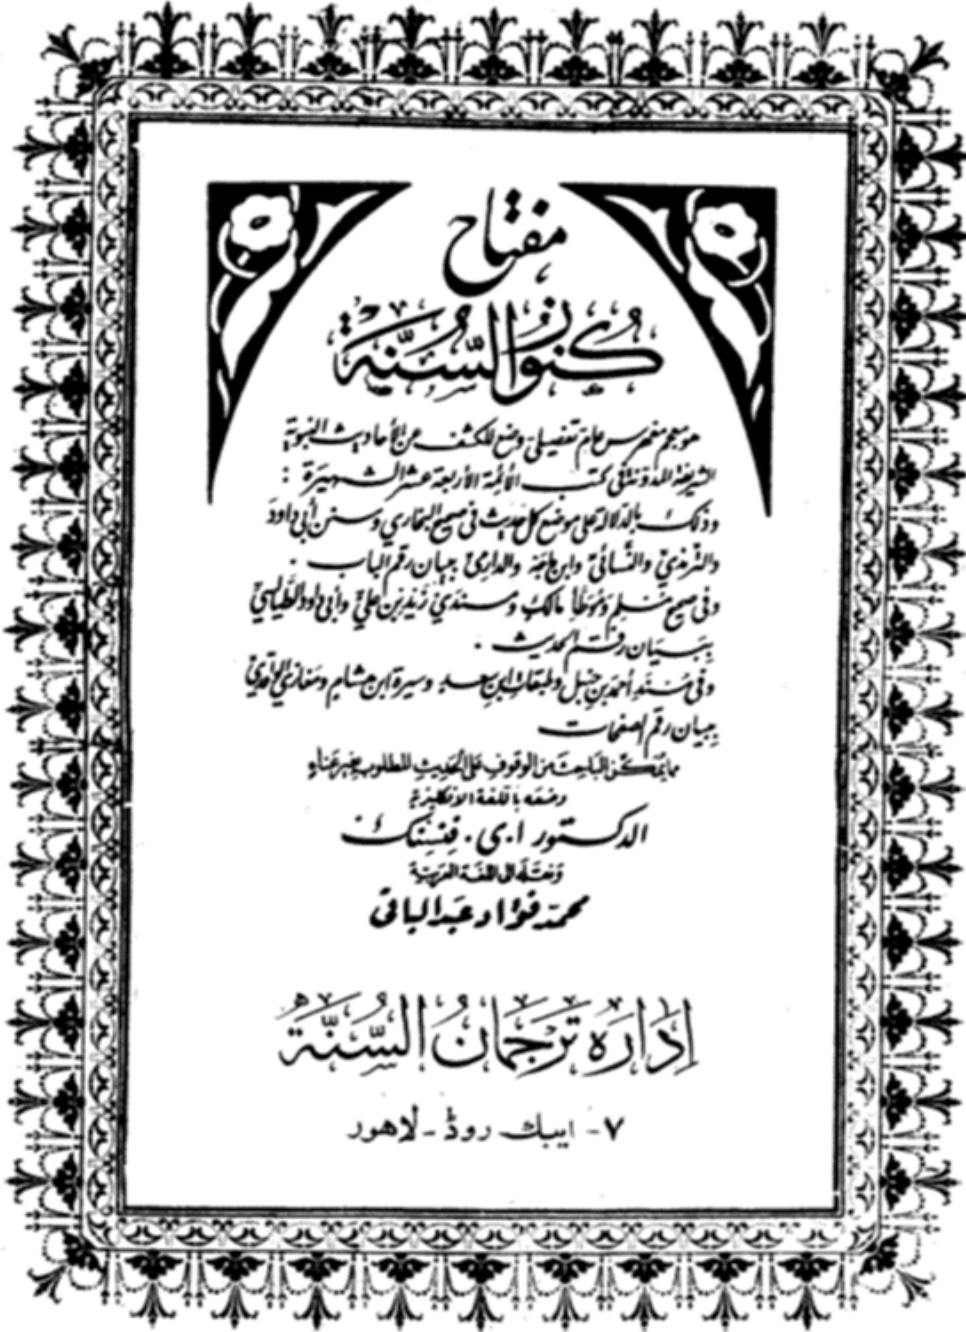 مفتاح
كنوز السنة
هو معجم مفهرس عام تفصيلي وضع للكشف عن الأحاديث النبوية
الشريفة المدونة في كتب الأئمة الأربعة عشر الشهيرة :
وذلك بالدلالة على موضع كل حديث في صحيح البخاري وسنن أبي داود
والترمذي والنسائي وابن ماجه والدارمي ببيان رقم الباب .
وفي صحيح مسلم وموطأ مالك ومسندي زيد بن علي وأبي داود الطيالسي
ببيان رقم الحديث .
وفي مسند أحمد بن حنبل وطبقات ابن سعد وسيرة ابن هشام ومغازي الواقدي
ببيان رقم الصفحات
مما يمكن الباحث من الوقوف على الحديث المطلوب بغير عناء
وضعه باللغة الانكليزية
الدكتور ا . ى . فنسنك
ونقله الى اللغة العربية
محمد فؤاد عبد الباقي
إدارہ ترجمان السنة
۷ - ایبک روڈ - لاهور